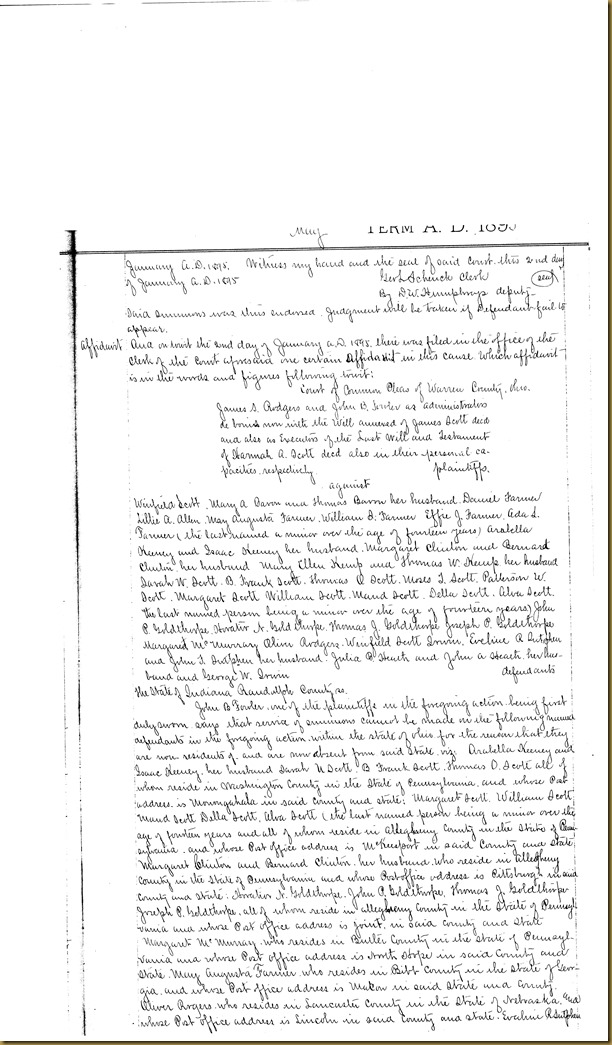 May TERM A. D. 1895
January A.D. 1895. Witness my hand and the seal of said Court this 2nd day
of January A.D. 1895 Geo L Schenck Clerk (seal)
By D.W. Humphreys deputy
Said summons was thus endorsed. Judgment will be taken if Defendant fail to
appear.
Affidavit And on towit the 2nd day of January A.D. 1895. there was filed in the office of the
Clerk of the Court aforesaid one certain Affidavit in this cause which affidavit
is in the words and figures following towit:
Court of Common Pleas of Warren County, Ohio.
James S. Rodgers and John B. Fowler as administrators
de bonis non with the Will annexed of James Scott decd
and also as Executors of the Last Will and Testament
of Hannah A. Scott decd also in their personal ca-
pacities. respectively. plaintiffs.
against
Winfield Scott. Mary A. Baron and Thomas Baron her husband. Daniel Farmer
Lillie A. Allen, May Augusta Farmer. William F. Farmer Effie J. Farmer, Ada L.
Farmer (the last named a minor over the age of fourteen years) Arabella
Keeney and Isaac Keeney her husband. Margaret Clinton and Bernard
Clinton her husband Mary Ellen Kemp and Thomas W. Kemp, her husband
Sarah N. Scott. B. Frank Scott. Thomas O Scott. Moses T. Scott. Patterson W.
Scott. Margaret Scott William Scott. Maud Scott. Della Scott. Alva Scott.
the last named person being a minor over the age of fourteen years) John
P. Goldthorpe. Horatio N. Goldthorpe. Thomas J. Goldthorpe Joseph P. Goldthorpe
Margaret McMurray Rodgers. Winfield Scott Irwin, Eveline R Sutphen
and John T. Sutphen her husband. Julia P. Heath and John A Heath. her hus-
band and George W. Irwin defendants
The State of Indiana Randolph County ss.
John B Fowler, one of the plaintiffs in the foregoing action being first
duly sworn says that service of summons cannot be made in the following named
defendants in the forgoing action. within the state of Ohio for the reason that they
are non residents of, and are now absent from said State, viz: Arabella Keeney and
Isaac Keeney, her husband Sarah N Scott. B Frank Scott. Thomas O. Scott all of
whom reside in Washington County in the State of Pennsylvania. and whose Post
address is Monongahela in said County and state: Margaret Scott. William Scott
Maud Scott Della Scott, Alva Scott (the last named person being a minor over the
age of fourteen years and all of whom reside in Allegheny County in the State of Penn-
sylvania. and whose Post office address is McKeesport in said County and State
Margaret Clinton and Bernard Clinton. her husband who reside in Allegheny
County in the State of Pennsylvania and whose Postoffice address is Pittsburgh in said
County and State: Horatio N. Goldthorpe. John P. Goldthorpe, Thomas J. Goldthorpe
Joseph P. Goldthorpe, all of whom reside in Allegheny County in the State of Pennsyl-
vania and whose Post office address is in said County and State
Margaret McMurray. who resides in Butler County in the State of Pennsyl-
vania and whose Post office address is North Hope in said County and
State. May Augusta Farmer who resides in Bibb County in the State of Geor-
gia, and whose Post office address is Macon in said State and County.
Oliver Rogers who resides in Lancaster County in the State of Nebraska, and
whose Post office address is Lincoln in said County and state. Eveline R Sutphen